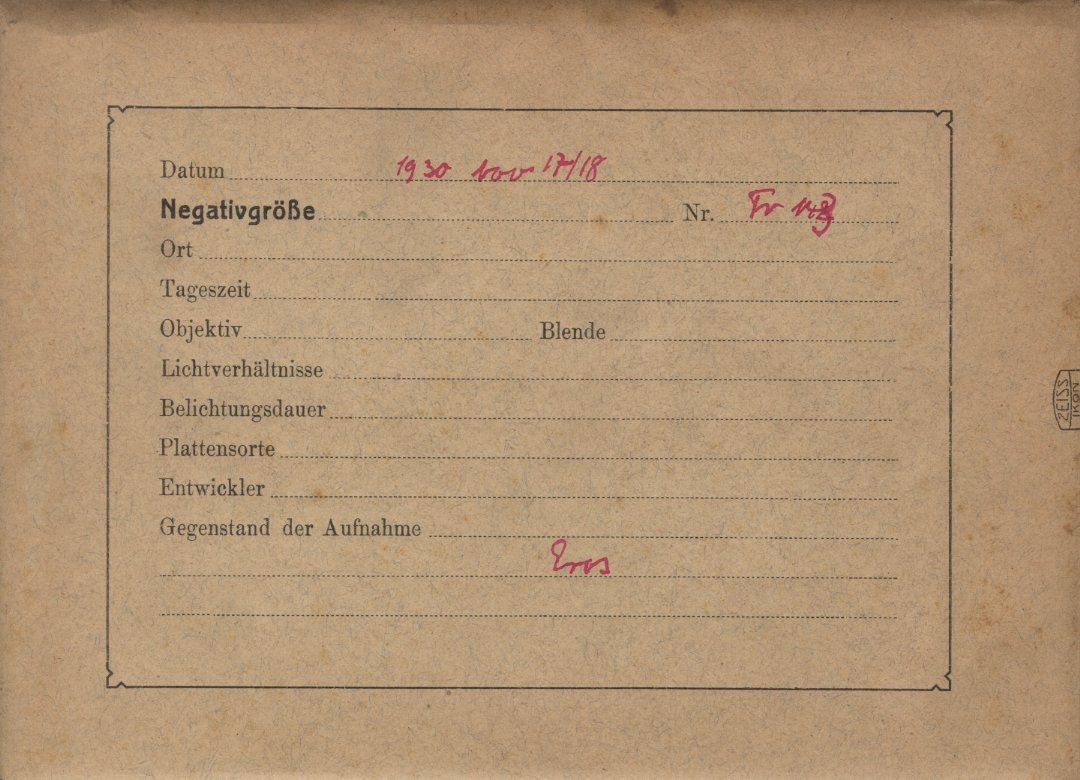 Datum 1930 Nov 17/18
Negativgröße Nr. Tr
Ort
Tageszeit
Objektiv Blende
Lichtverhältnisse
Belichtungsdauer
Plattensorte
Entwickler
Gegenstand der Aufnahme
Eros
ZEISS
IKON